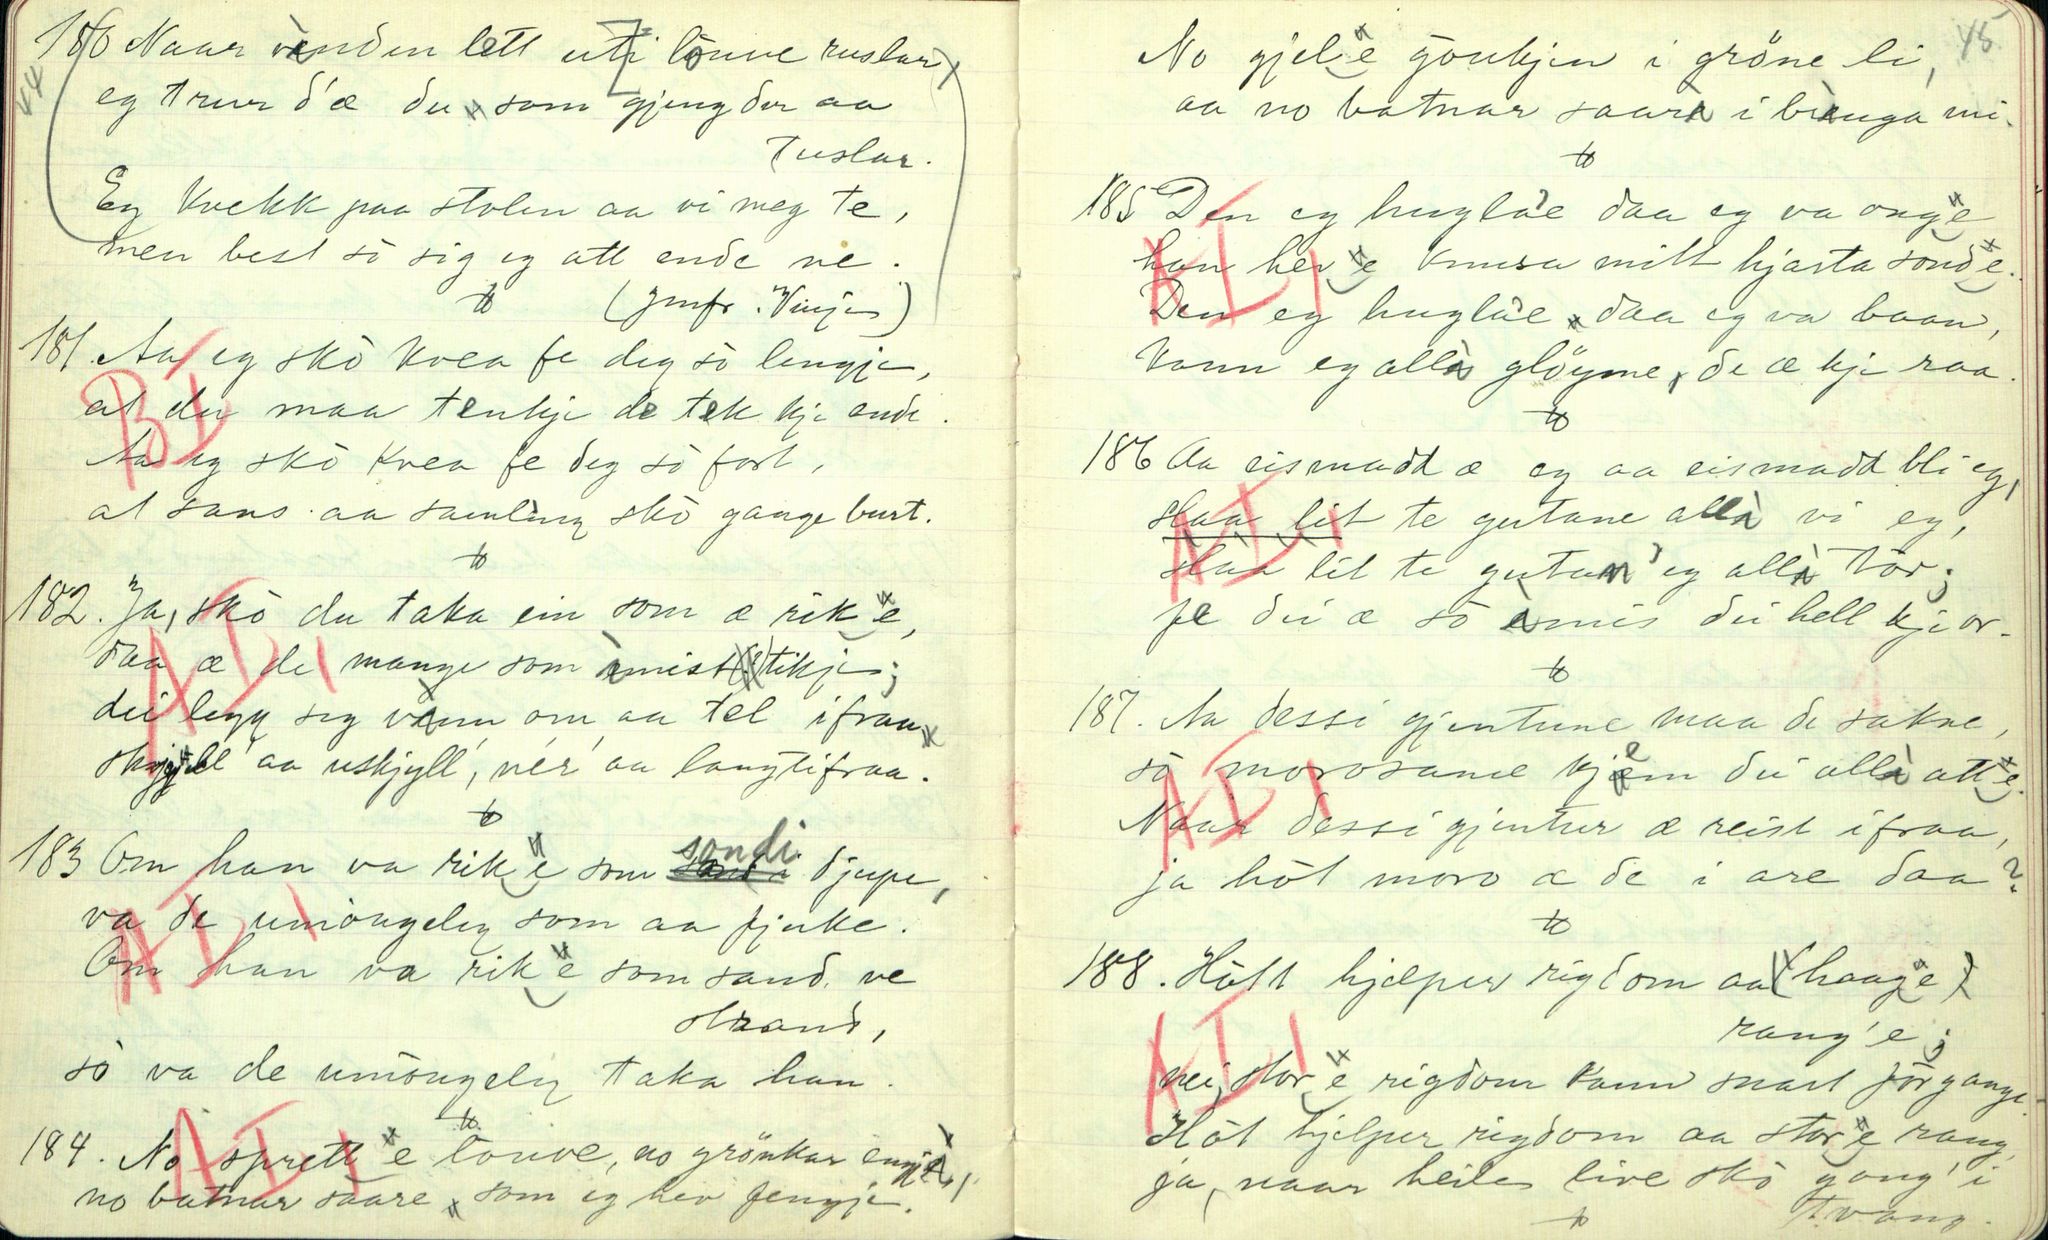 44
180 Naar vinden lett uti löuve ruslar,
eg trur d'æ du som gjeng der aa
tuslar.
Eg kvekk paa stolen aa vi meg te,
men best sò sig eg att ende ne.
(Jmfr. Vinje)
181. Aa eg skò kvea fe deg sò lengje,
at du maa tenkje de tek kje ende.
Aa eg skò kvea fe deg sò fort,
at sans aa samling skò gange burt.
BI
182. Ja, skò du taka ein som æ rik e,
daa æ de mange som imist tikje;
dei legg seg vinn om aa tel ifraa
skjyll' aa uskjyll', nér' aa langtifraa.
AI,
183 Om han va rik e som sondi djupe,
va de umöugeleg som aa fjuke.
Om han va rik e som sand ve
strand,
sò va de umöugeleg taka han.
AI,
184. No sprett e löuve, no grönkar engji,
no batnar saare som eg hev fengje.
AI,
45
No gjel e göukjen i gröne li,
aa no batnar saari i bringa mi.
185 Den eg huglae daa eg va onge
han hev e knusa mitt hjarta sònde.
Den eg huglae daa eg va baan,
kann eg alli glöyme, de æ kje raa.
AI,
186 Aa eismadd æ eg aa eismadd bli eg,
slaa lit te gutane alli vi eg,
slaa lit te gutan' eg alli tòr;
fe dei æ sò imis dei hell kje or.
AI,
187. Aa dessi gjentune maa de sakne,
sò morosame kjem dei alli atte.
Naar dessi gjentur æ reist ifraa,
ja hòt moro æ de i are daa?
AI,
188. Hòtt hjelper rigdom aa (haage)
rang'e;
nei, stor e rigdom kann snart forgange.
Hòt hjelper rigdom aa stor e rang,
ja, naar heile live skò gang' i
tvang.
AI,